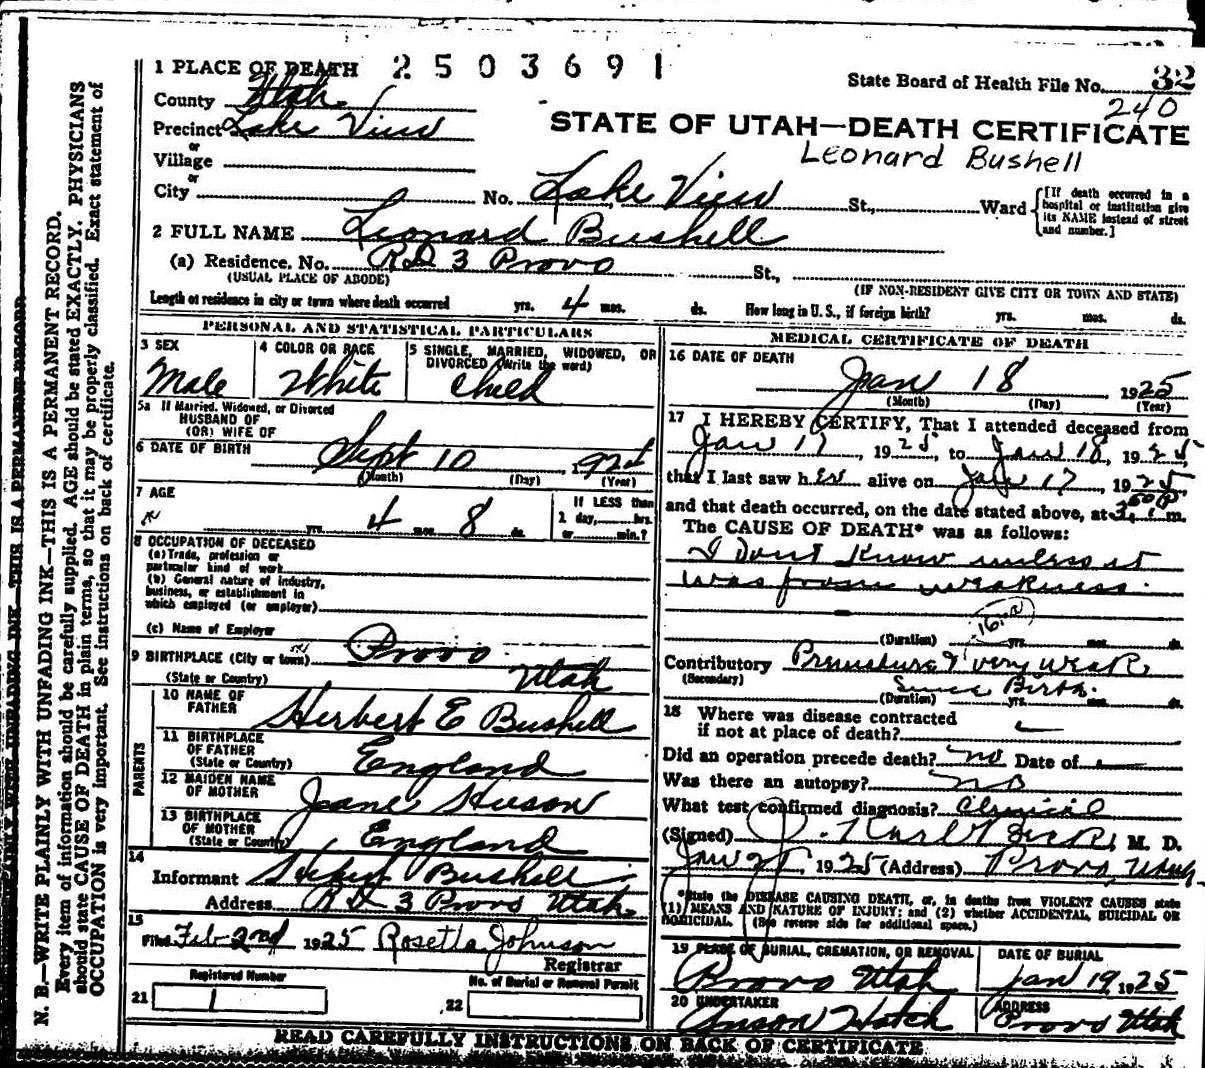 1 PLACE OF DEATH 2503691
State Board of Health File No. 32
240
County Utah
Precinct Lake View
STATE OF UTAH—DEATH CERTIFICATE
Leonard Bushell
or
Village
or
City No. Lake View St., Ward
[If death occurred in a hospital or institution give its NAME instead of street and number.]
2 FULL NAME Leonard Bushell
(a) Residence. No. RD 3 Provo St.,
(USUAL PLACE OF ABODE) (IF NON-RESIDENT GIVE CITY OR TOWN AND STATE)
Length of residence in city or town where death occurred yrs. 4 mos. ds. How long in U. S., if foreign birth? yrs. mos. ds.
PERSONAL AND STATISTICAL PARTICULARS
3 SEX
Male
4 COLOR OR RACE
White
5 SINGLE, MARRIED, WIDOWED, OR
DIVORCED (Write the word)
Child
5a If Married, Widowed, or Divorced
HUSBAND OF
(OR) WIFE OF
6 DATE OF BIRTH Sept 10, 1924
(Month) (Day) (Year)
7 AGE
yrs. 4 mos. 8 ds.
If LESS than
1 day, hrs.
or min.?
8 OCCUPATION OF DECEASED
(a) Trade, profession or
particular kind of work
(b) General nature of industry,
business, or establishment in
which employed (or employer)
(c) Name of Employer
9 BIRTHPLACE (City or town) Provo
(State or Country) Utah
PARENTS
10 NAME OF
FATHER Herbert E Bushell
11 BIRTHPLACE
OF FATHER
(State or Country) England
12 MAIDEN NAME
OF MOTHER Jeane
13 BIRTHPLACE
OF MOTHER
(State or Country) England
14
Informant Bushell
Address RD 3 Provo Utah
15
Filed Feb 2nd 1925 Rosetta Johnson
Registrar
Registered Number
21 1
No. of Burial or Removal Permit
22
MEDICAL CERTIFICATE OF DEATH
16 DATE OF DEATH
Jan 18 1925
(Month) (Day) (Year)
17 I HEREBY CERTIFY, That I attended deceased from
Jan 17, 1925, to Jan 18, 1925,
that I last saw h alive on Jan 17, 1925,
and that death occurred, on the date stated above, at m.
The CAUSE OF DEATH* was as follows:
I Dont Know unless it
was from weakness.
(Duration) yrs. mos. ds.
Contributory Premature & very weak
(Secondary) Since Birth.
(Duration) yrs. mos. ds.
18 Where was disease contracted
if not at place of death?
Did an operation precede death? no Date of
Was there an autopsy? no
What test confirmed diagnosis? Clinical
(Signed) J. Karl M. D.
Jan 1925 (Address) Provo, Utah
*State the DISEASE CAUSING DEATH, or, in deaths from VIOLENT CAUSES state
(1) MEANS AND NATURE OF INJURY; and (2) whether ACCIDENTAL, SUICIDAL OR
HOMICIDAL. (See reverse side for additional space.)
19 PLACE OF BURIAL, CREMATION, OR REMOVAL
Provo Utah
DATE OF BURIAL
Jan 19, 1925
20 UNDERTAKER
Hatch
ADDRESS
Provo Utah
READ CAREFULLY INSTRUCTIONS ON BACK OF CERTIFICATE
N. B.—WRITE PLAINLY WITH UNFADING INK—THIS IS A PERMANENT RECORD.
Every item of information should be carefully supplied. AGE should be stated EXACTLY. PHYSICIANS
should state CAUSE OF DEATH in plain terms, so that it may be properly classified. Exact statement of
OCCUPATION is very important. See instructions on back of certificate.